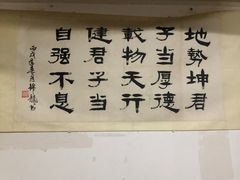 地勢坤君
子当厚德
載物天行
健君子当
自强不息
丙戌年